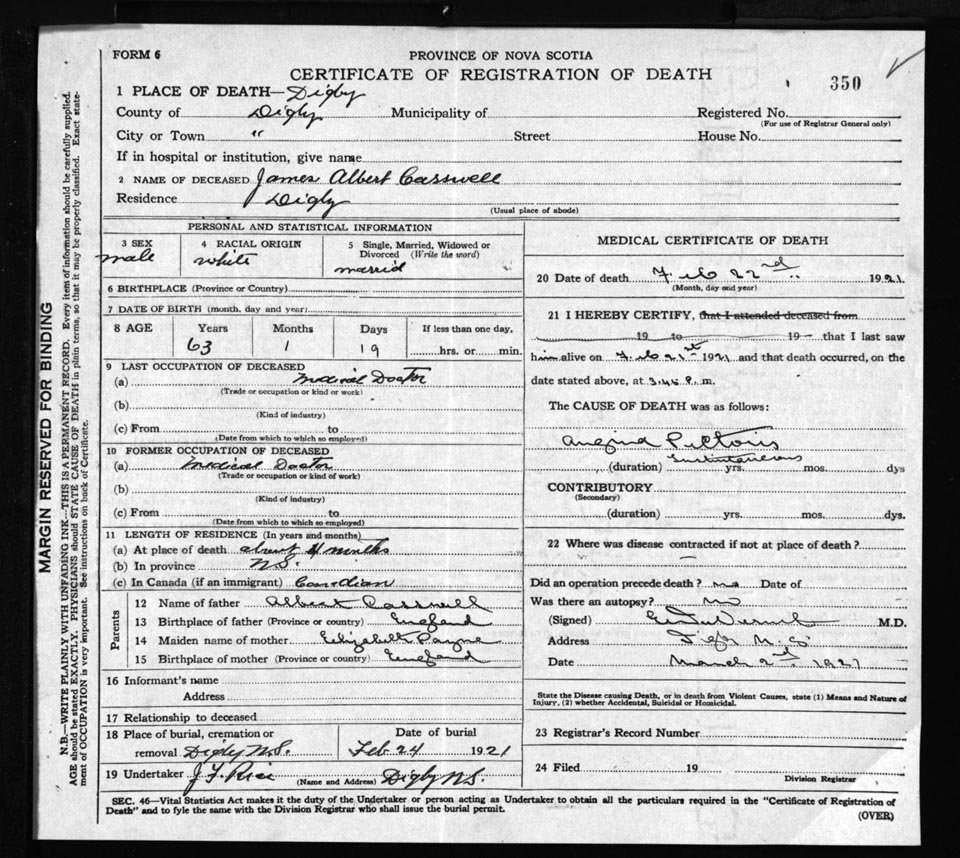 FORM 6
PROVINCE OF NOVA SCOTIA
CERTIFICATE OF REGISTRATION OF DEATH
350
1 PLACE OF DEATH—Digby
County of Digby Municipality of Registered No.
(For use of Registrar General only)
City or Town " Street House No.
If in hospital or institution, give name
2 NAME OF DECEASED James Albert Casswell
Residence Digby
(Usual place of abode)
PERSONAL AND STATISTICAL INFORMATION
3 SEX male
4 RACIAL ORIGIN white
5 Single, Married, Widowed or Divorced (Write the word) married
6 BIRTHPLACE (Province or Country)
7 DATE OF BIRTH (month, day and year)
8 AGE Years Months Days If less than one day,
63 1 19 hrs. or min.
9 LAST OCCUPATION OF DECEASED
(a) Medical Doctor
(Trade or occupation or kind or work)
(b)
(Kind of industry)
(c) From to
(Date from which to which so employed)
10 FORMER OCCUPATION OF DECEASED
(a) Medical Doctor
(Trade or occupation or kind of work)
(b)
(Kind of industry)
(c) From to
(Date from which to which so employed)
11 LENGTH OF RESIDENCE (In years and months)
(a) At place of death about 4 months
(b) In province N.S.
(c) In Canada (if an immigrant) Canadian
Parents
12 Name of father Albert Casswell
13 Birthplace of father (Province or country) England
14 Maiden name of mother Elizabeth Payne
15 Birthplace of mother (Province or country) England
16 Informant's name
Address
17 Relationship to deceased
18 Place of burial, cremation or removal Digby N.S.
Date of burial Feb 24 1921
19 Undertaker J. F. Rice (Name and Address) Digby N.S.
MEDICAL CERTIFICATE OF DEATH
20 Date of death Feb 22nd 1921
(Month, day and year)
21 I HEREBY CERTIFY, that I attended deceased from
19 to 19 that I last saw
him alive on Feb 21st 1921 and that death occurred, on the
date stated above, at 3.45 P. m.
The CAUSE OF DEATH was as follows:
Angina Pectoris
Instantaneous
(duration) yrs. mos. dys
CONTRIBUTORY
(Secondary)
(duration) yrs. mos. dys.
22 Where was disease contracted if not at place of death?
Did an operation precede death? no Date of
Was there an autopsy? no
(Signed) M.D.
Address N.S.
Date March 2nd 1921
State the Disease causing Death, or in death from Violent Causes, state (1) Means and Nature of
Injury, (2) whether Accidental, Suicidal or Homicidal.
23 Registrar's Record Number
24 Filed 19
Division Registrar
SEC. 46—Vital Statistics Act makes it the duty of the Undertaker or person acting as Undertaker to obtain all the particulars required in the "Certificate of Registration of
Death" and to fyle the same with the Division Registrar who shall issue the burial permit.
(OVER)
MARGIN RESERVED FOR BINDING
N.B.—WRITE PLAINLY WITH UNFADING INK—THIS IS A PERMANENT RECORD. Every item of information should be carefully supplied.
AGE should be stated EXACTLY. PHYSICIANS should STATE CAUSE OF DEATH in plain terms, so that it may be properly classified. Exact state-
ment of OCCUPATION is very important. See instructions on back of Certificate.